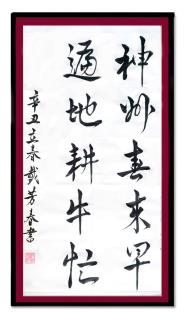 神州春来早
遍地耕牛忙
辛丑立春戴芳春書